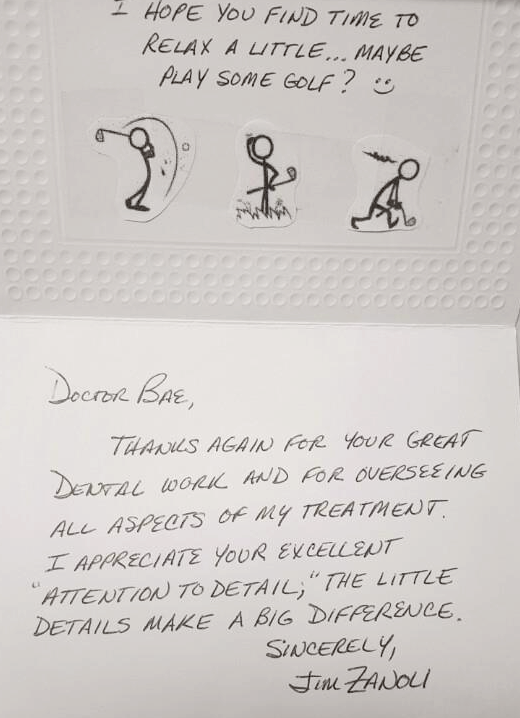 I HOPE YOU FIND TIME TO
RELAX A LITTLE... MAYBE
PLAY SOME GOLF? :)
DOCTOR BAE,
THANKS AGAIN FOR YOUR GREAT
DENTAL WORK AND FOR OVERSEEING
ALL ASPECTS OF MY TREATMENT.
I APPRECIATE YOUR EXCELLENT
"ATTENTION TO DETAIL;" THE LITTLE
DETAILS MAKE A BIG DIFFERENCE.
SINCERELY,
JIM ZANOLI